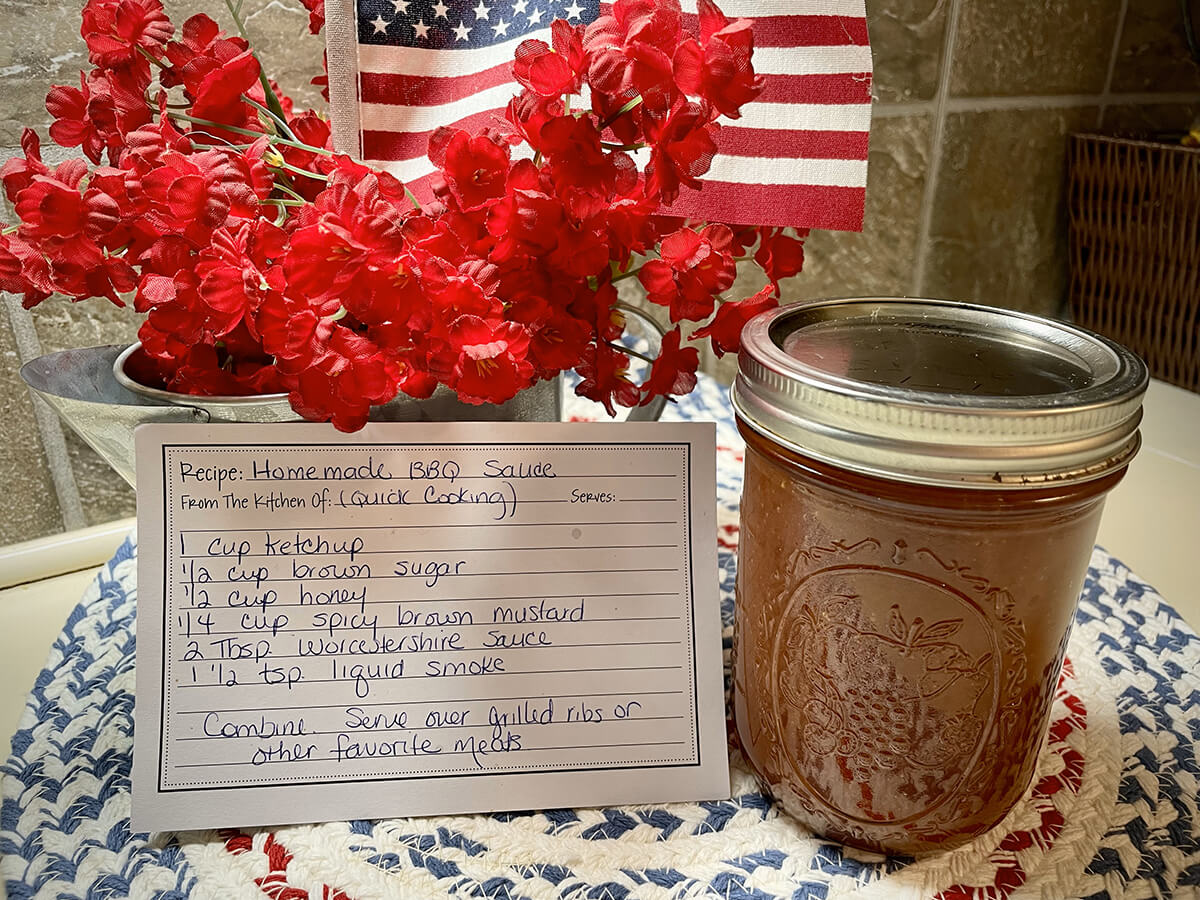 Recipe: Homemade BBQ Sauce
From The Kitchen Of: (Quick Cooking) Serves:
1 cup ketchup
1/2 cup brown sugar
1/2 cup honey
1/4 cup spicy brown mustard
2 Tbsp. Worcestershire Sauce
1 1/2 tsp. liquid smoke
Combine. Serve over grilled ribs or
other favorite meats